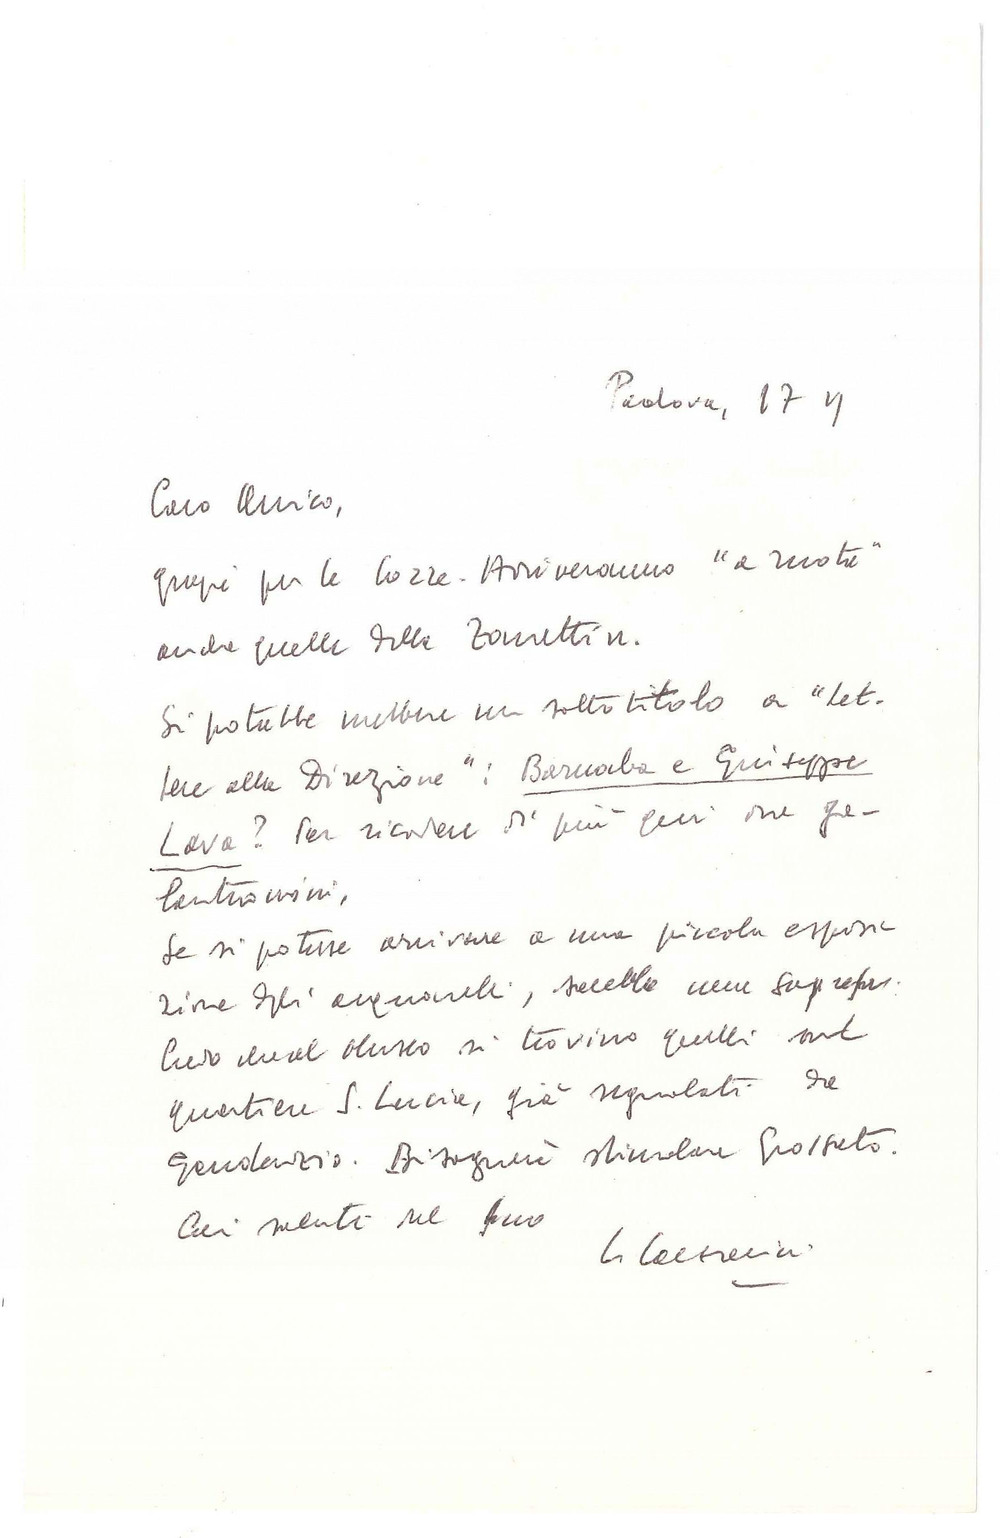 Padova, 17 VI
Caro Amico,
grazie per le bozze. Arriveranno "a ruota"
anche quelle della Zanettin.
Si potrebbe mettere un sottotitolo a "Let-
tere alla Direzione": Barnaba e Giuseppe
Lava? Per ricordare di più quei due ga-
lantuomini,
Se si potesse arrivare a una piccola esposi
zione degli acquarelli, sarebbe
Credo che al Museo si trovino quelli sul
quartiere S. Lucia, già segnalati da
Gaudenzio. Bisognerà stimolare Grossato.
Cari saluti dal Suo